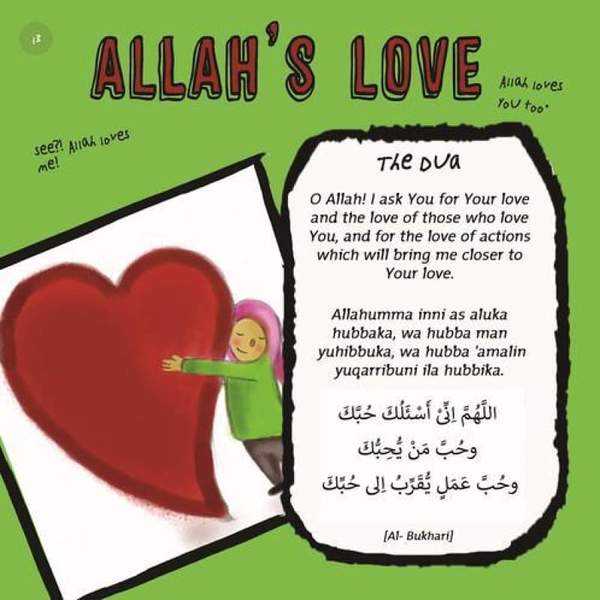 13
ALLAH'S LOVE
Allah loves
you too.
see?! Allah loves
me!
The Dua
O Allah! I ask You for Your love
and the love of those who love
You, and for the love of actions
which will bring me closer to
Your love.
Allahumma inni as aluka
hubbaka, wa hubba man
yuhibbuka, wa hubba 'amalin
yuqarribuni ila hubbika.
اللَّهُمَّ اِنِّىْ أَسْئَلُكَ حُبَّكَ
وحُبَّ مَنْ يُّحِبُّكَ
وحُبَّ عَمَلٍ يُّقَرِّبُ اِلى حُبِّكَ
[Al- Bukhari]